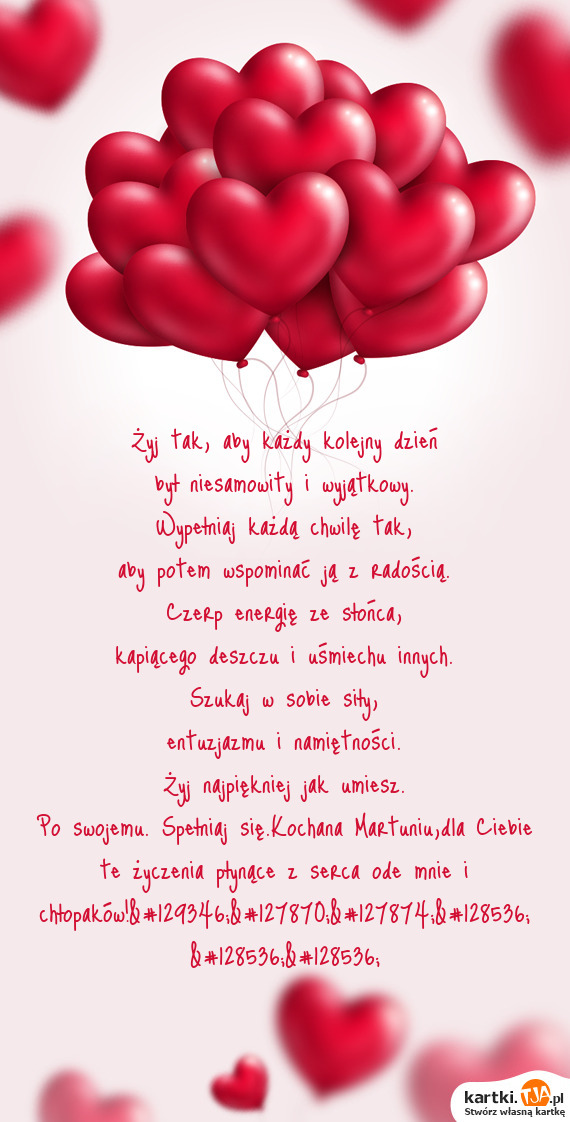 Żyj tak, aby każdy kolejny dzień
był niesamowity i wyjątkowy.
Wypełniaj każdą chwilę tak,
aby potem wspominać ją z radością.
Czerp energię ze słońca,
kapiącego deszczu i uśmiechu innych.
Szukaj w sobie siły,
entuzjazmu i namiętności.
Żyj najpiękniej jak umiesz.
Po swojemu. Spełniaj się.Kochana Martuniu,dla Ciebie
te życzenia płynące z serca ode mnie i
chłopaków!&#129346;&#127870;&#127874;&#128536;
&#128536;&#128536;
kartki.TJA.pl
Stwórz własną kartkę